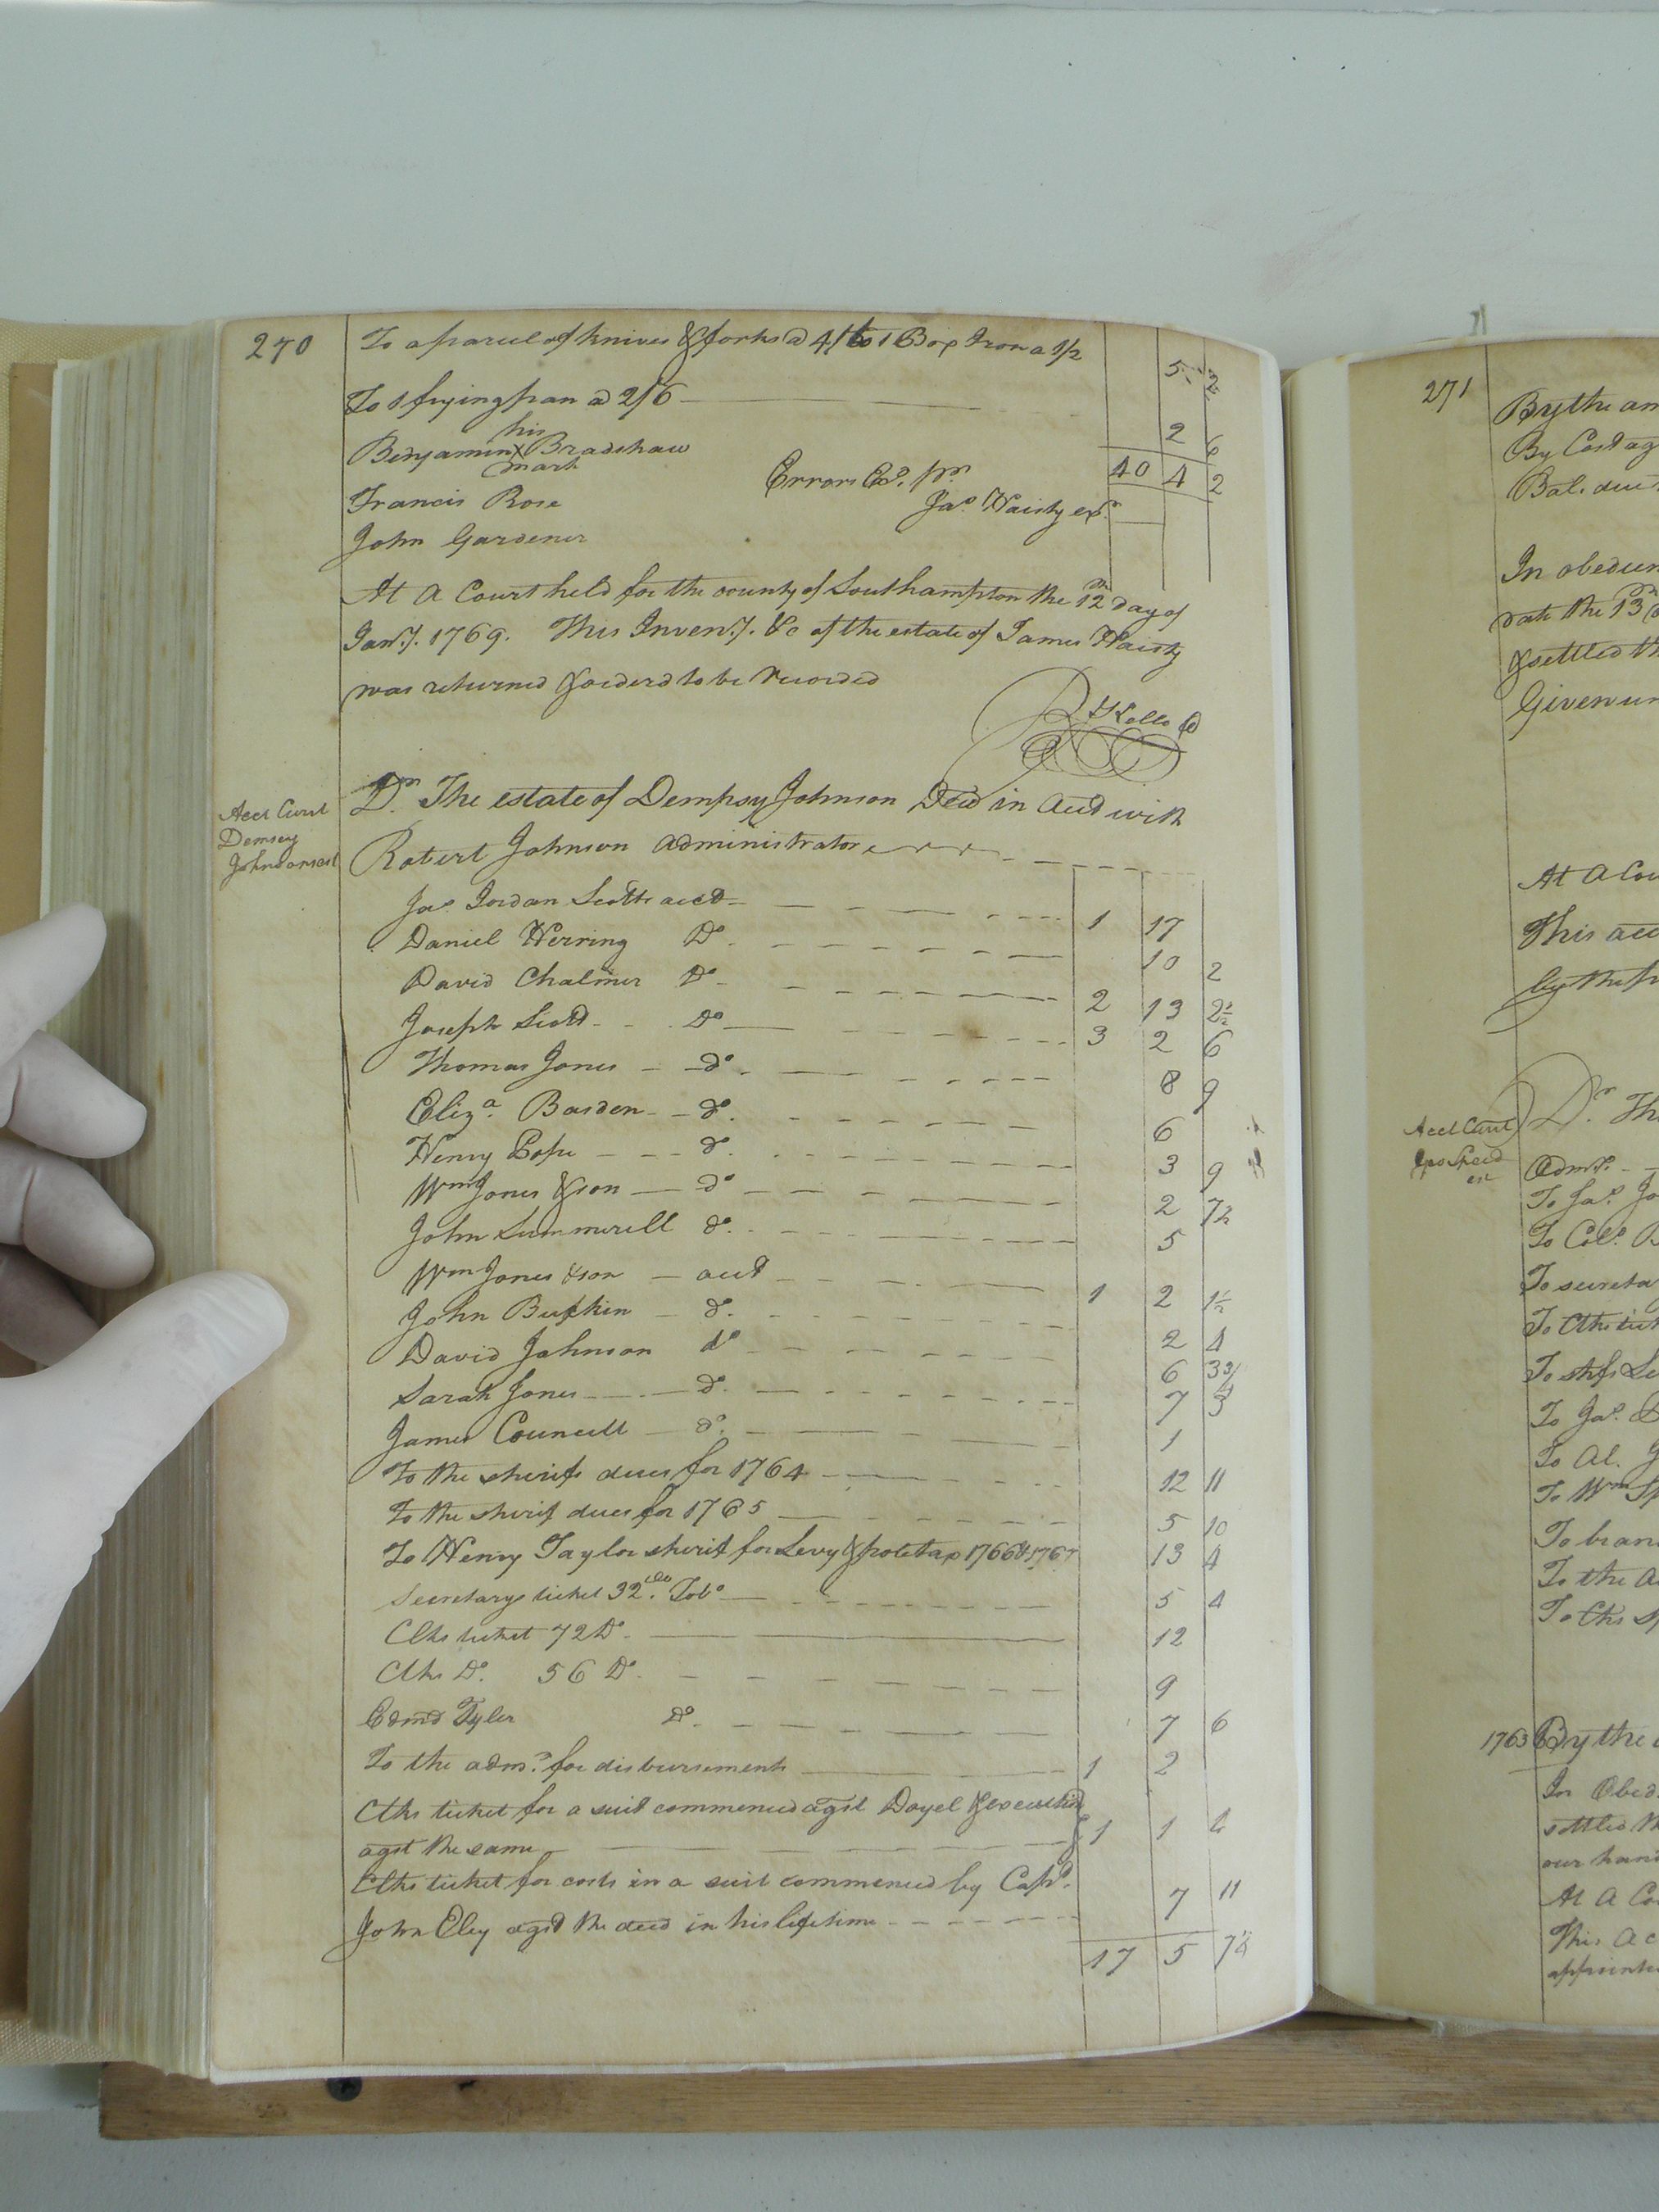 270
To a parcel of knives & forks a 4/ to 1 Box Iron a 1/2 5 2
To 1 frying pan a 2/6 2 6
his
Benjamin X Bradshaw
mark
Errors Ex.d pr. 40 4 2
Francis Rose Jas. Haisty exr.
John Gardener
At a Court held for the county of Southampton the 12th day of
Jany. 1769. This Inven.y. &c of the estate of James Haisty
was returned & orderd to be recorded
R Kello
Acct Curt
Demsey
Johnsons est
Dr. The estate of Dempsy Johnson Decd in acct with
Robert Johnson administrator
Jas. Jordan Scotts acct 1 17
Daniel Herring Do. 10 2
David Chalmer Do 2 13 2½
Joseph Scott Do 3 2 6
Thomas Jones do. 8 9
Eliza. Barden do. 6
Henry Pope do. 3 9
Wm Jones & son do 2 7½
John Summerell do. 5
Wm Jones & son acct 1 2 1½
John Bufkin do. 2 4
David Johnson do 6 3¾
Sarah Jones do. 7 3
James Councill do. 1
To the sherifs dues for 1764 12 11
To the sherif dues for 1765 5 10
To Henry Taylor sherif for Levy & poletax 1766 & 1767 13 4
Secretarys ticket 32 lbs. Tobo 5 4
Clks ticket 72 Do. 12
Clks Do. 56 Do. 9
Edmd Tyler Do. 7 6
To the admr. for disbursements 1 2
Clks ticket for a suit commenced agst Doyel & execution
agst the same 1 1
Clks ticket for costs in a suit commenced by Capt.
John Eley agst the decd in his lifetime 7 11
17 5
271
Brythe
By Cost ag
Bal. due
In obedien
date the 13th
& settled th
Given un
At a Cou
This acc
by the
Acct Curt
est
Dr. Th
Admr.
To Jas. Jo
To Colo. B
To secreta
To Clks tick
To shfs Se
To Jas.
To Al. J
To Wm Sp
To bran
To the a
To Cks sp
1763 By the
In Obed
settled th
our hand
At a Co
This ac
appointe